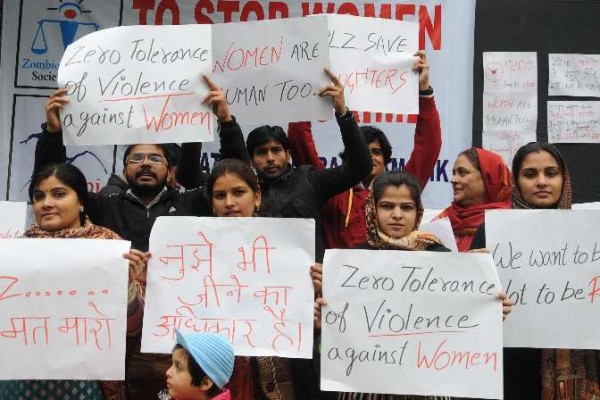 TO STOP WOMEN
Zombie
Societ
Zero Tolerance
of Violence
against Women
WOMEN ARE
HUMAN TOO..
LZ SAVE
DAUGHTERS
WOMEN ARE
HUMAN TOO..
Z........
मत मारो
मुझे भी
जीने का
अधिकार है।
Zero Tolerance
of Violence
against Women
We want to b
ot to be R